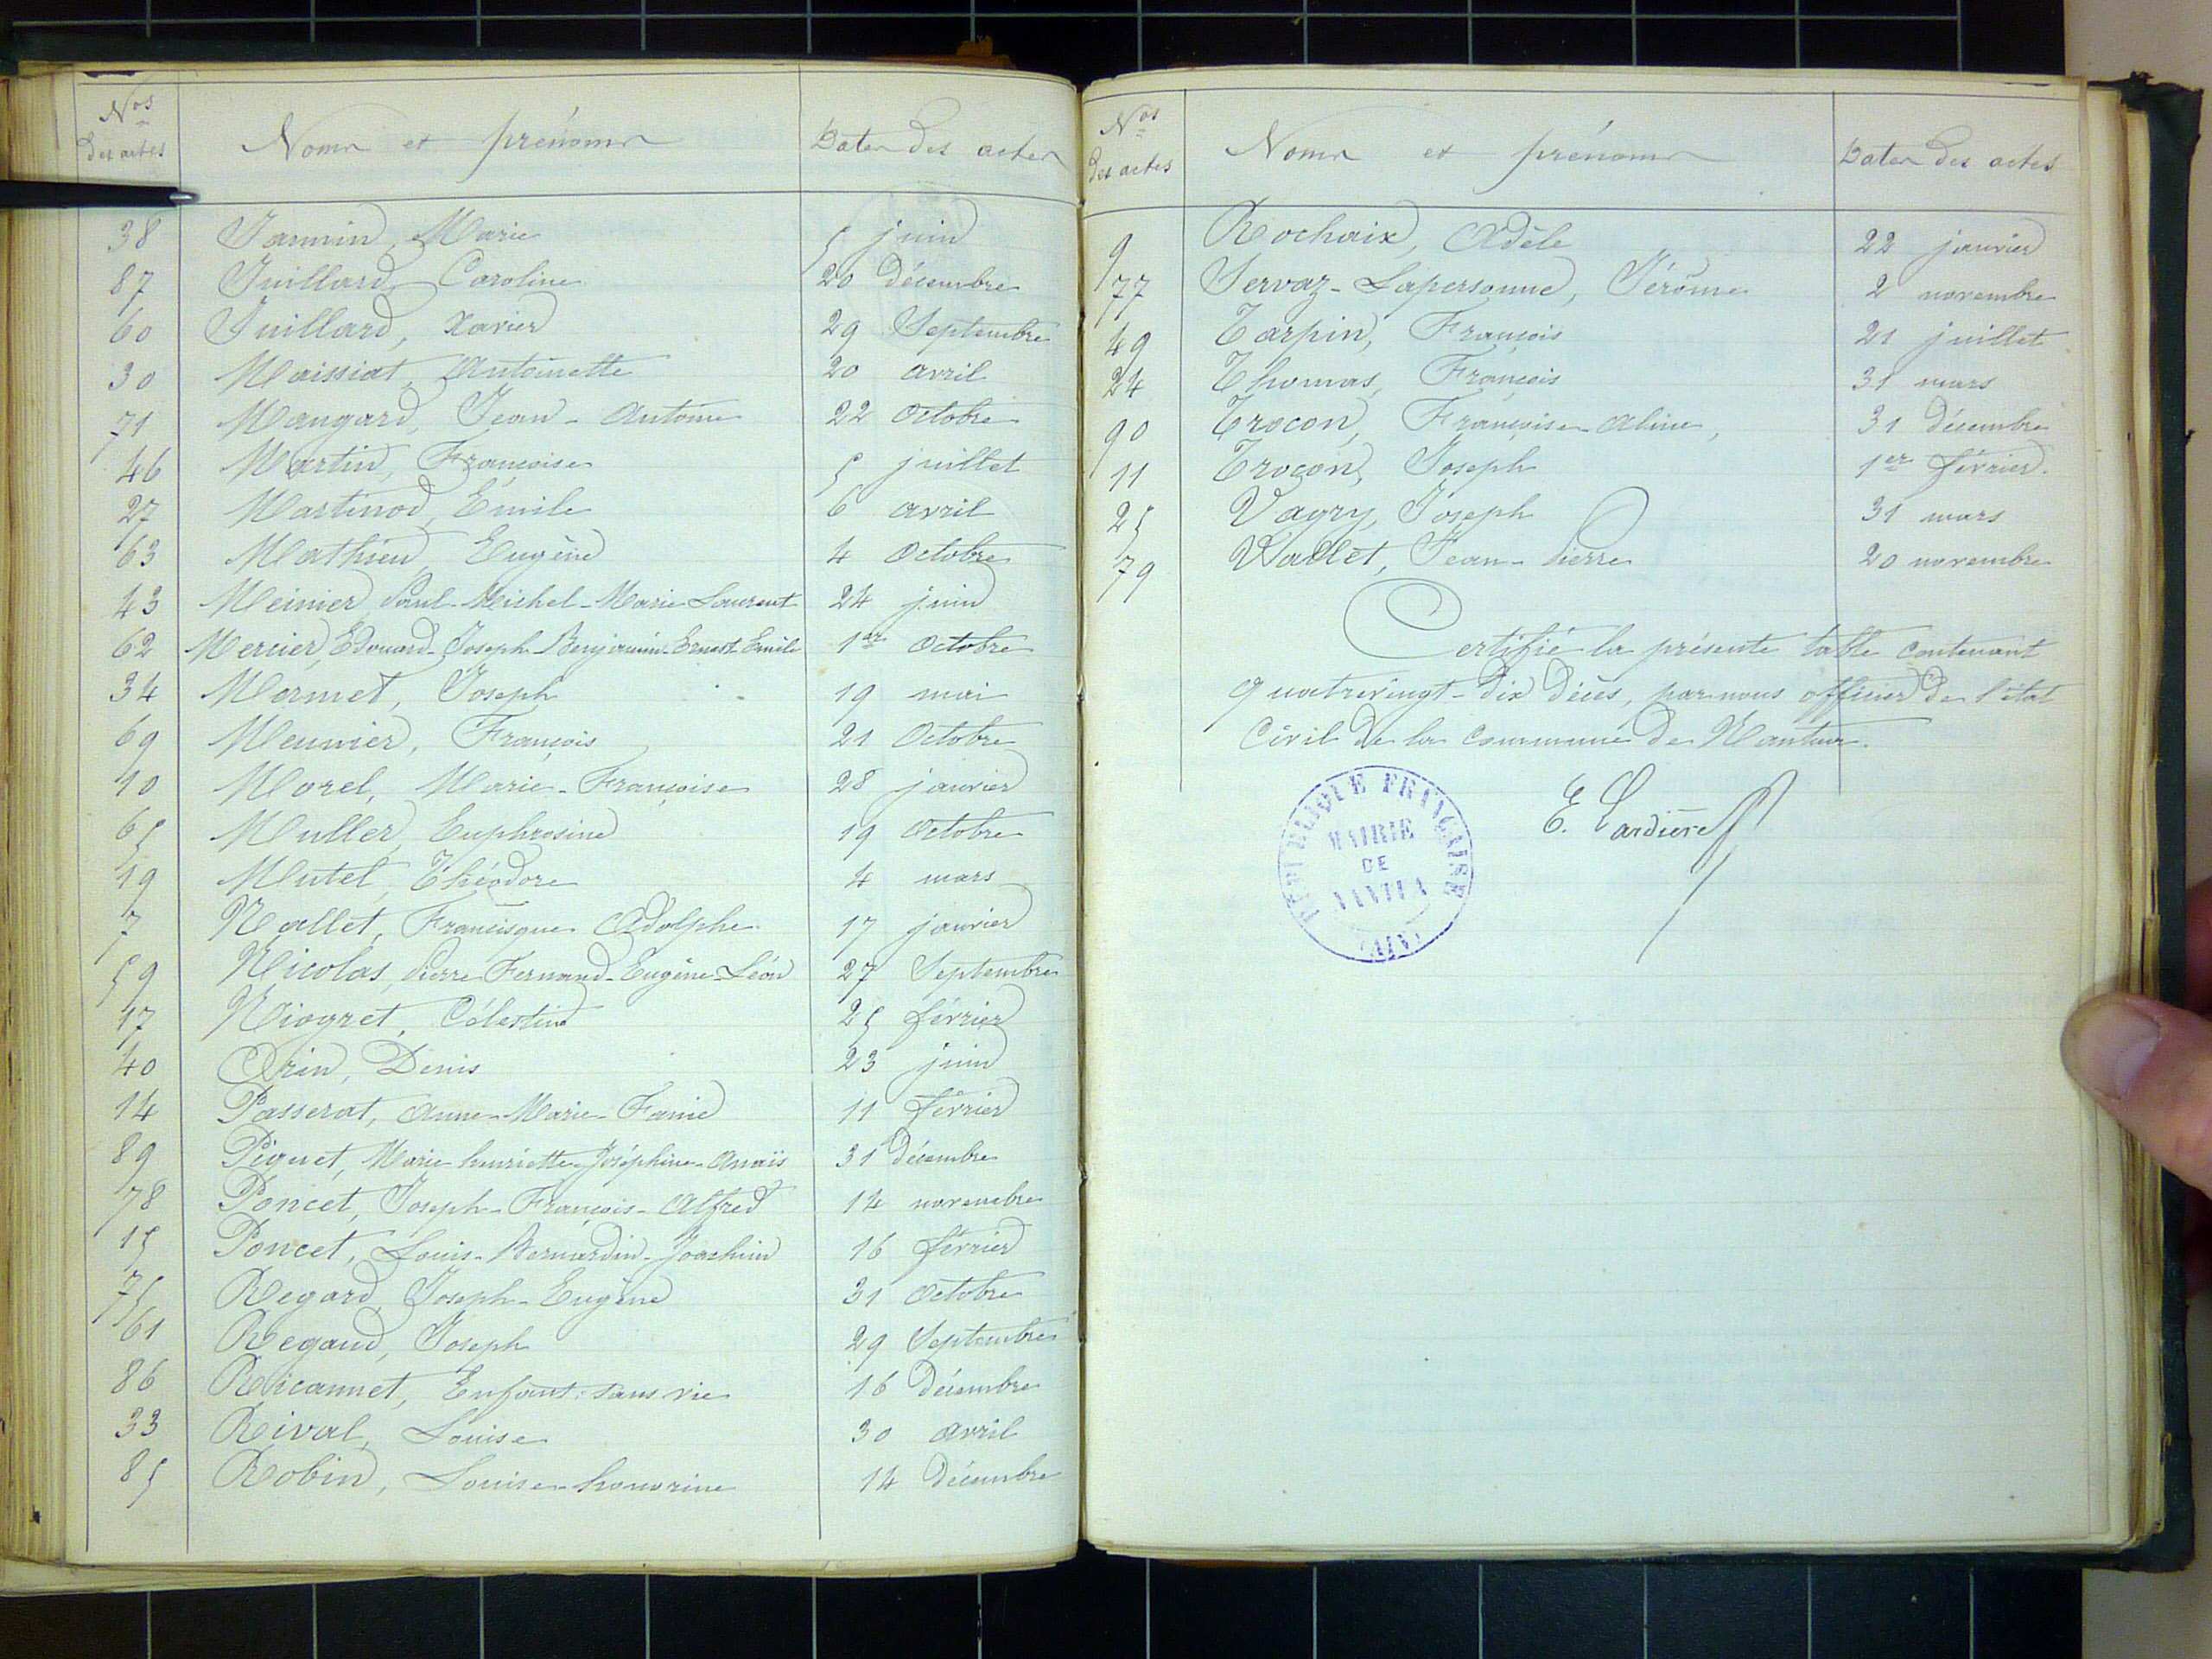 Nos des actes Noms et prénoms Dates des actes
38 Jannin, Marie 5 juin
87 Juillard, Caroline 20 décembre
60 Juillard, Xavier 29 Septembre
30 Maissiat, Antoinette 20 avril
71 Mangard, Jean-Antoine 22 Octobre
46 Martin, Françoise 5 juillet
27 Martinod, Emile 6 avril
63 Mathieu, Eugène 4 Octobre
43 Meinier, Paul-Michel-Marie-Laurent 24 juin
62 Mercier, Edouard-Joseph-Benjamin-Ernest-Emile 1er Octobre
34 Mermet, Joseph 19 mai
69 Meunier, François 21 Octobre
10 Morel, Marie-Françoise 28 janvier
65 Muller, Euphrosine 19 Octobre
19 Mutel, Théodore 4 mars
7 Nallet, Francisque Adolphe 17 janvier
59 Nicolas, Pierre-Fernand-Eugène-Léon 27 Septembre
17 Niogret, Célestin 25 février
40 Orin, Denis 23 juin
14 Passerat, Anne-Marie-Fanie 11 février
89 Piquet, Marie-henriette-Joséphine-Anaïs 31 décembre
78 Poncet, Joseph-François-Alfred 14 novembre
15 Poncet, Louis-Bernardin-Joachim 16 février
75 Regard, Joseph-Eugène 31 Octobre
61 Regaud, Joseph 29 Septembre
86 Ricannet, Enfant sans vie 16 décembre
33 Rival, Louise 30 avril
85 Robin, Louise-honorine 14 décembre
Nos des actes Noms et prénoms Dates des actes
9 Rochaix, Adèle 22 janvier
77 Servaz-Lapersonne, Jérôme 2 novembre
49 Tarpin, François 21 juillet
24 Thomas, François 31 mars
90 Trocon, Françoise-Aline, 31 décembre
11 Trocon, Joseph 1er février
25 Vagry, Joseph 31 mars
79 Vallet, Jean-Pierre 20 novembre
Certifié la présente table contenant
quatrevingt-dix décès, par nous officier de l'état
Civil de la commune de Nantua.
E. Cardière
REPUBLIQUE FRANÇAISE
MAIRIE
DE
NANTUA
(AIN)